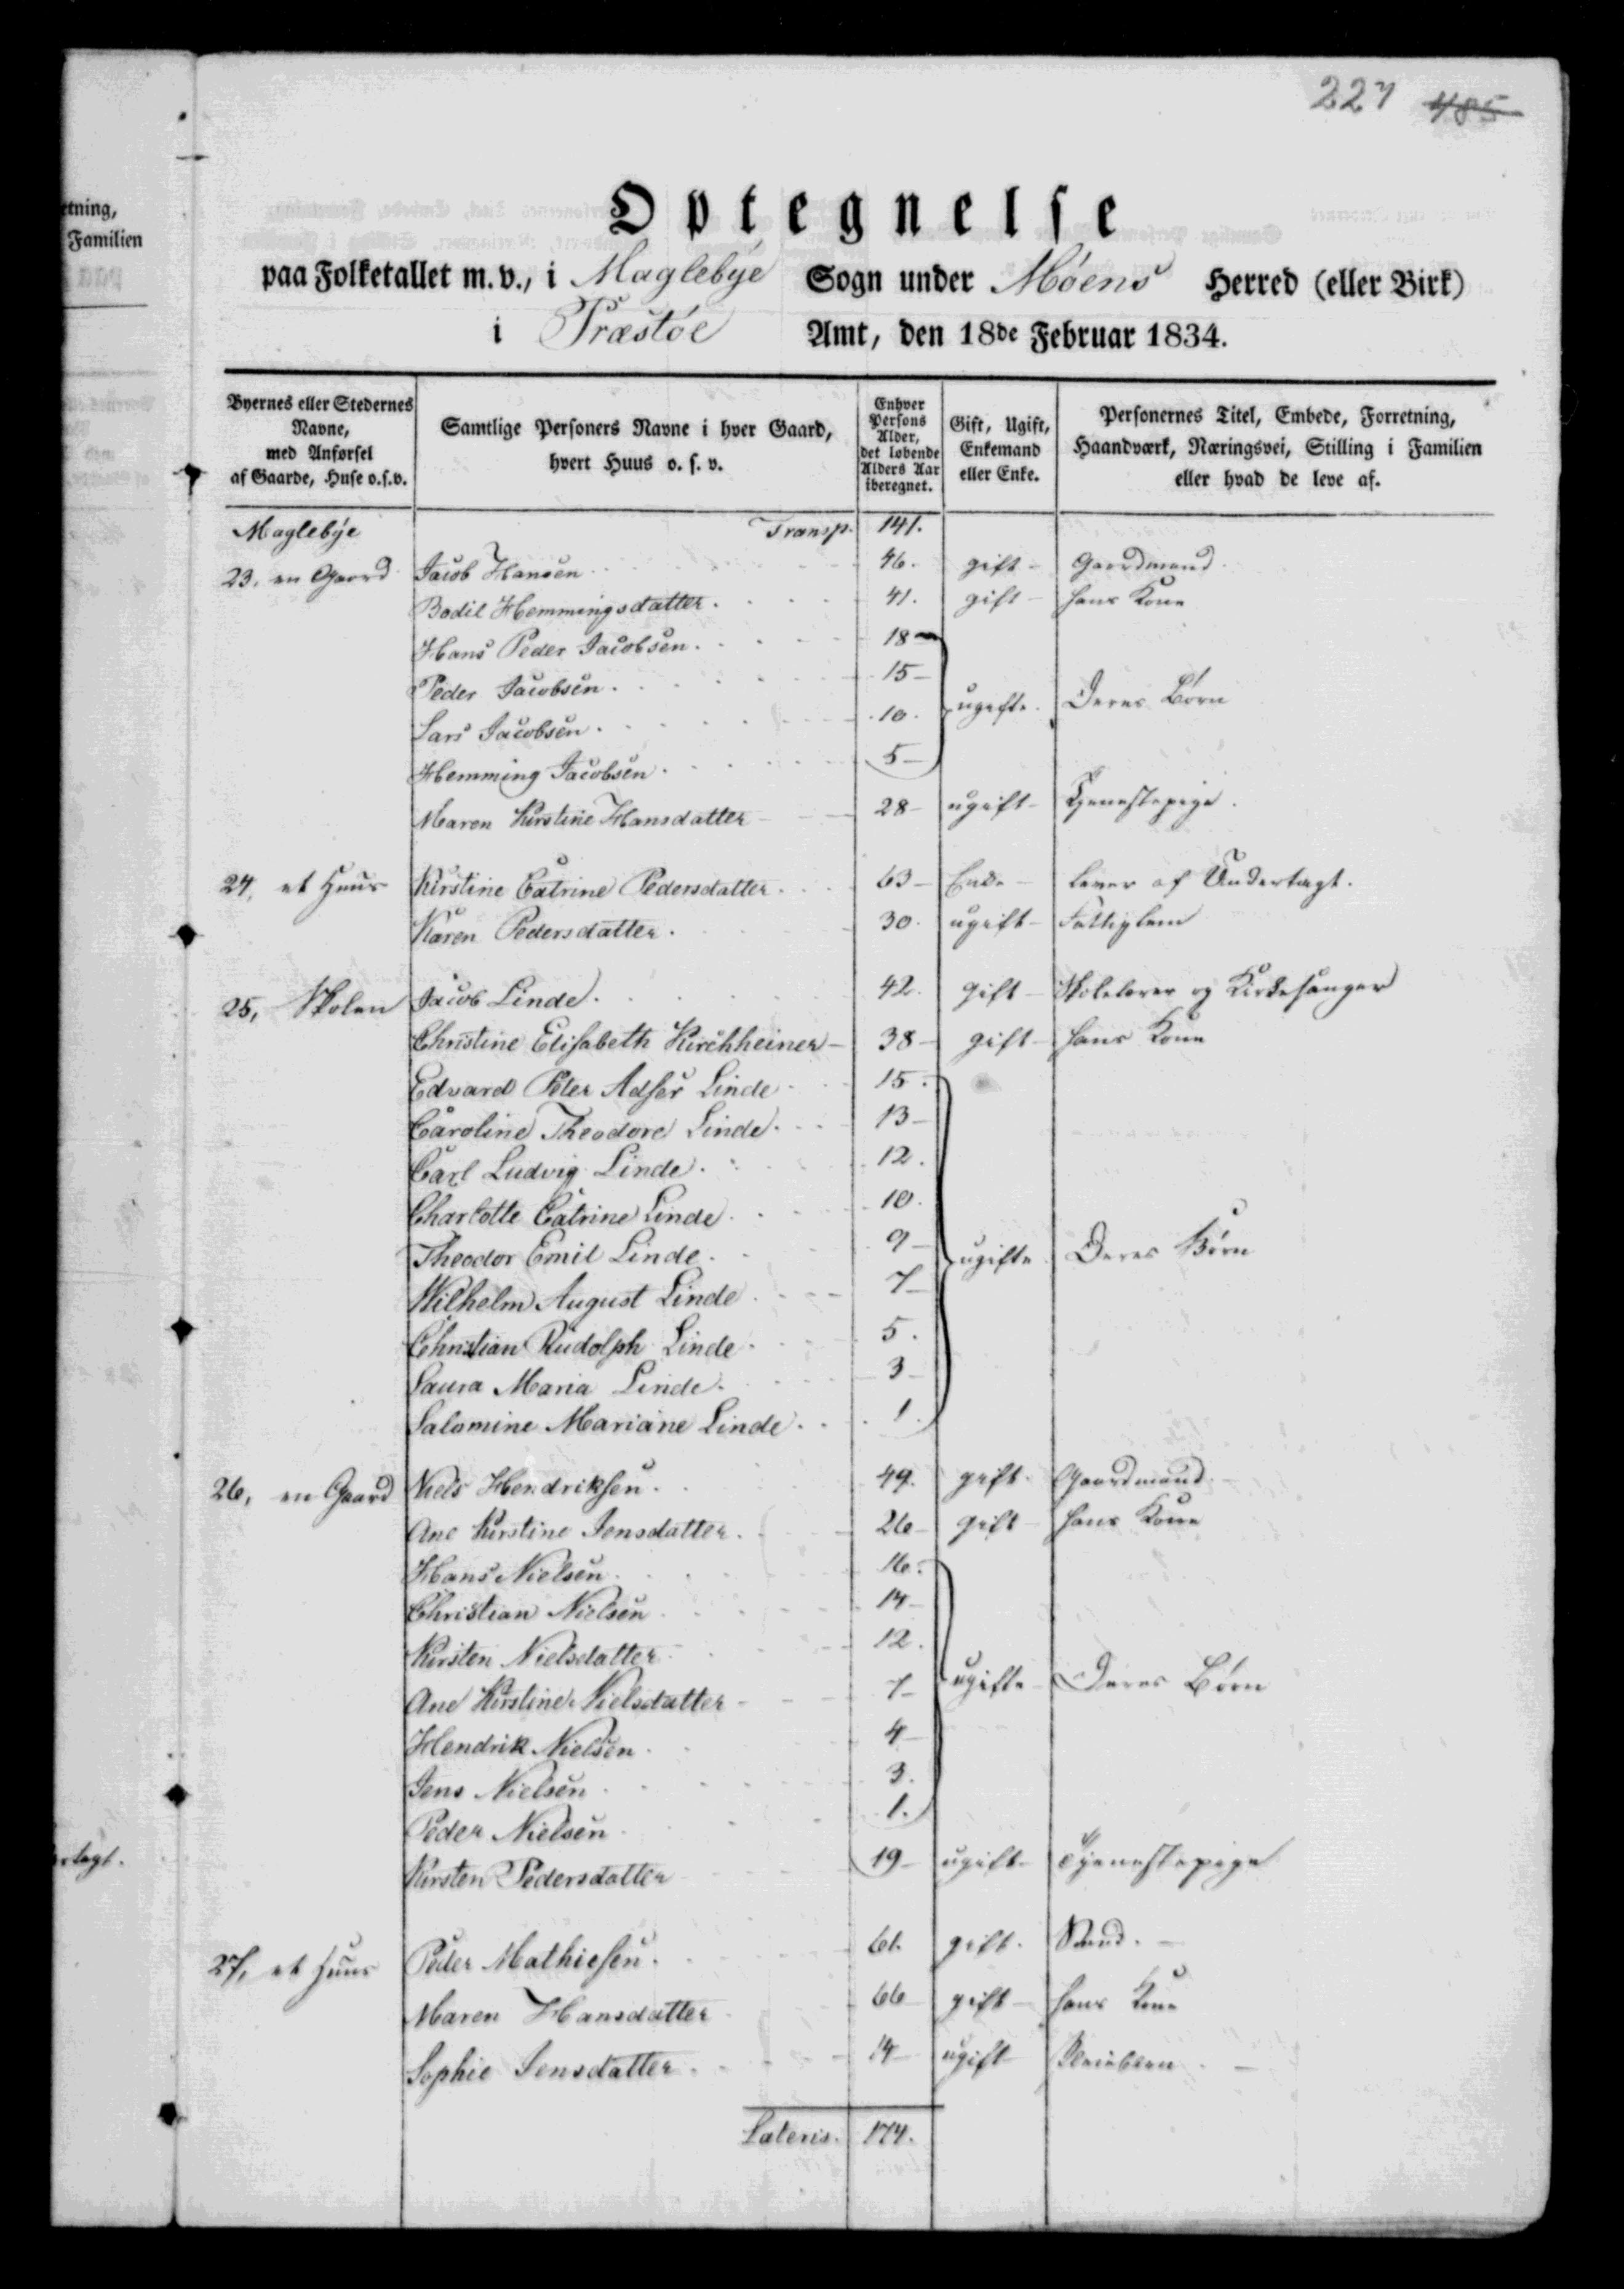 227 485
etning,
Familien
Optegnelse
paa Folketallet m. v., i Maglebye Sogn under Møens Herred (eller Birk)
i Præstøe Amt, den 18de Februar 1834.
Byernes eller Stedernes Navne, med Anførsel af Gaarde, Huse o.s.v.
Samtlige Personers Navne i hver Gaard, hvert Huus o. s. v.
Enhver Persons Alder, det løbende Alders Aar iberegnet.
Gift, Ugift, Enkemand eller Enke.
Personernes Titel, Embede, Forretning, Haandværk, Næringsvei, Stilling i Familien eller hvad de leve af.
Maglebye Transp. 141.
23, en Gaard Jacob Hansen 46. gift Gaardmand
Bodil Hemmingsdatter 41. gift hans Kone
Hans Peder Jacobsen 18
Peder Jacobsen 15
Lars Jacobsen 10 ugifte Deres Børn
Hemming Jacobsen 5
Maren Kirstine Hansdatter 28 ugift Tjenestepige
24, et Huus Kirstine Catrine Pedersdatter 63 Enke lever af Undertægt.
Karen Pedersdatter 30 ugift Fattiglem
25, Skolen Jacob Linde 42 gift Skolelærer og Kirkesanger
Christine Elisabeth Kirchheiner 38 gift hans Kone
Edvard Peter Adser Linde 15
Caroline Theodore Linde 13
Carl Ludvig Linde 12
Charlotte Catrine Linde 10
Theodor Emil Linde 9 ugifte Deres Børn
Wilhelm August Linde 7
Christian Rudolph Linde 5
Laura Maria Linde 3
Salomine Mariane Linde 1
26, en Gaard Niels Hendriksen 49. gift Gaardmand
Ane Kirstine Jensdatter 26 gift hans Kone
Hans Nielsen 16
Christian Nielsen 14
Kirsten Nielsdatter 12
Ane Kirstine Nielsdatter 7 ugifte Deres Børn
Hendrik Nielsen 4
Jens Nielsen 3
Peder Nielsen 1.
Kirsten Pedersdatter 19 ugift Tjenestepige
27, et Huus Peder Mathiesen 61. gift
Maren Hansdatter 66 gift hans Kone
Sophie Jensdatter 14 ugift Pleiebarn
Lateris. 174.